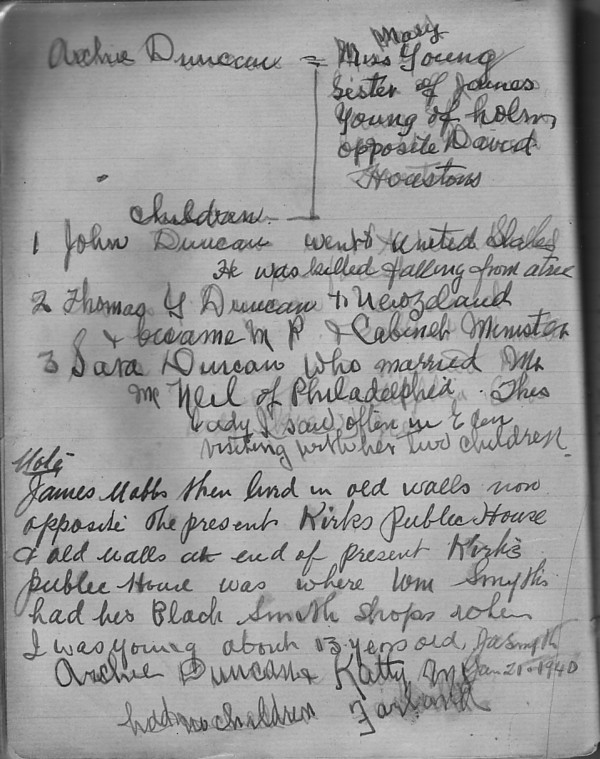 Archie Duncan = Miss Mary Young
Sister of James
Young of holm
opposite David
Houstons
Children
1 John Duncan went to United States
He was killed falling from a tree
2 Thomas Y Duncan to Newzeland
& became M P & Cabineh Minister
3 Sara Duncan who married Mr
Mc Neil of Philadelphia. This
Lady I saw often in Eden
visiting with her two children.
Note
James Mabbs then lived in old walls now
opposite the present Kirks Public House
& old walls at end of present Kirks
Public House was where Wm Smyth
had his Black Smith Shops when
I was young about 13 years old. Jas Smyth
Archie Duncan & Katty Mc Jan 21-1940
had no children Farland